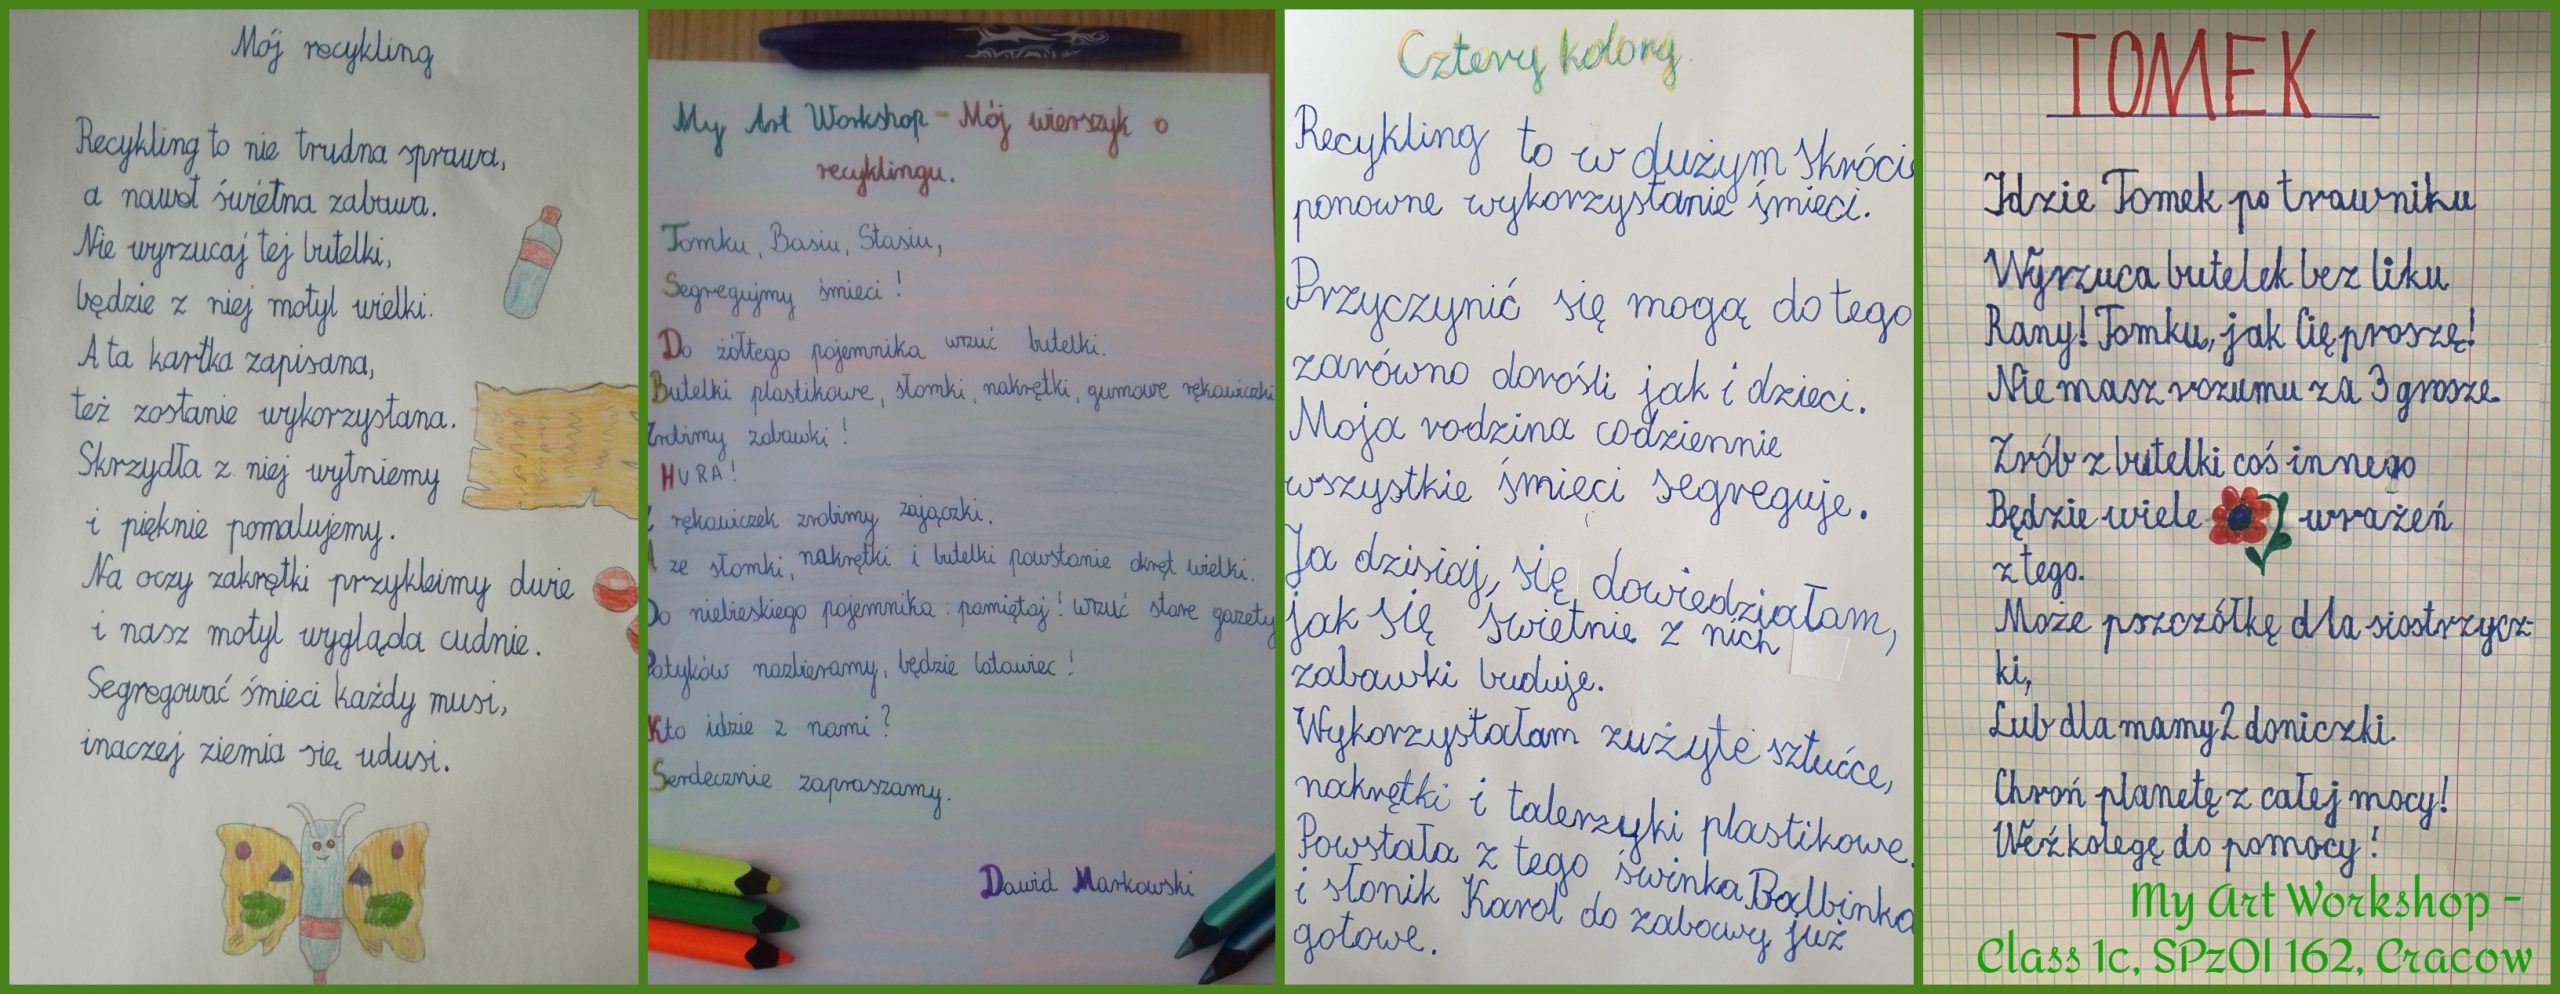 Mój recykling
Recykling to nie trudna sprawa,
a nawet świetna zabawa.
Nie wyrzucaj tej butelki,
będzie z niej motyl wielki.
A ta kartka zapisana,
też zostanie wykorzystana.
Skrzydła z niej wytniemy
i pięknie pomalujemy.
Na oczy zakrętki przykleimy dwie
i nasz motyl wygląda cudnie.
Segregować śmieci każdy musi,
inaczej ziemia się udusi.
My Art Workshop - Mój wierszyk o
recyklingu.
Tomku, Basiu, Stasiu,
Segregujmy śmieci!
Do żółtego pojemnika wrzuć butelki.
Butelki plastikowe, słomki, nakrętki, gumowe rękawiczki
Zróbimy zabawki!
HURA!
Z rękawiczek zrobimy zajączki.
A ze słomki, nakrętki i butelki powstanie okręt wielki.
Do niebieskiego pojemnika: pamiętaj! wrzuć stare gazety
Patyków nazbieramy, będzie latawiec!
Kto idzie z nami?
Serdecznie zapraszamy.
Dawid Markowski
Cztery kolory.
Recykling to w dużym skróci
ponowne wykorzystanie śmieci.
Przyczynić się mogą do tego
zarówno dorośli jak i dzieci.
Moja rodzina codziennie
wszystkie śmieci segreguje.
Ja dzisiaj, się dowiedziałam,
jak się świetnie z nich
zabawki buduje.
Wykorzystałam zużyte sztućce,
nakrętki i talerzyki plastikowe.
Powstała z tego świnka Balbinka
i słonik Karol do zabawy już
gotowe.
TOMEK
Idzie Tomek po trawniku
Wyrzuca butelek bez liku
Rany! Tomku, jak Cię proszę!
Nie masz rozumu za 3 grosze.
Zrób z butelki coś innego
Będzie wiele wrażeń
z tego.
Może pszczółkę dla siostrzycz-
ki,
Lub dla mamy 2 doniczki.
Chroń planetę z całej mocy!
Weź kolegę do pomocy!
My Art Workshop -
Class 1c, SPzOI 162, Cracow